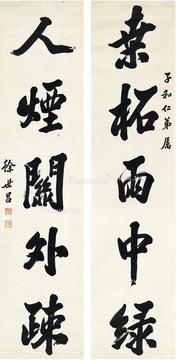 桒柘雨中緑
子和仁弟屬
人煙關外踈
徐世昌